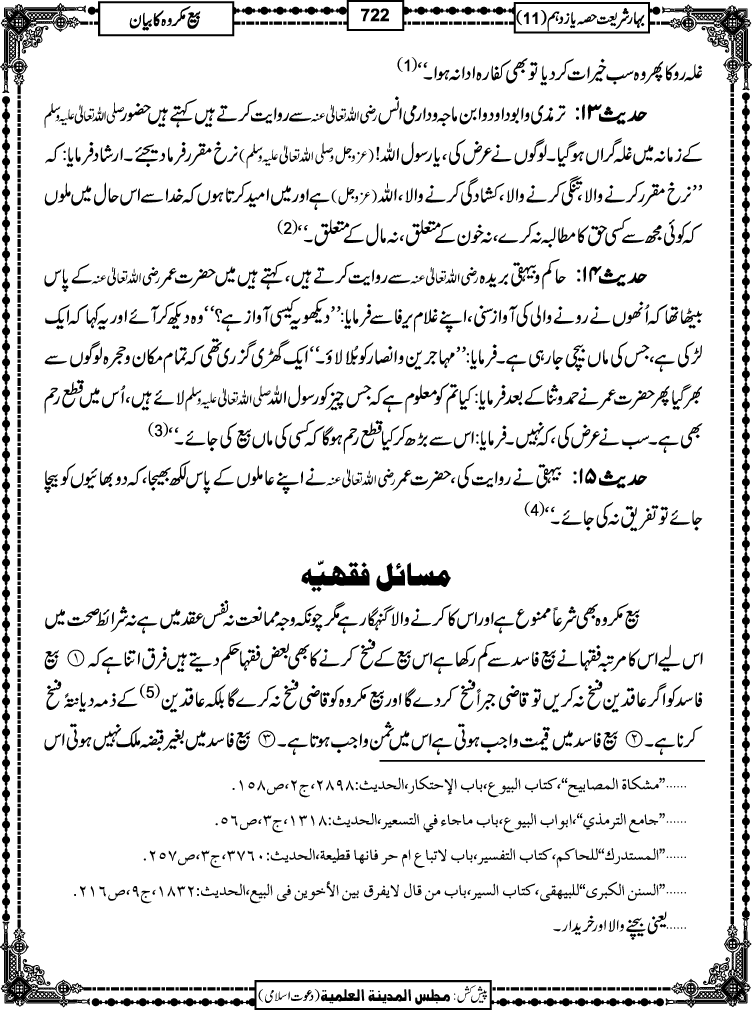 بہار شریعت حصہ یازدہم (11)
722
بیع مکروہ کا بیان
غلہ روکا پھر وہ سب خیرات کر دیا تو بھی کفارہ ادا نہ ہوا۔‘‘(1)
حدیث ۱۳: ترمذی و ابو داود و ابن ماجہ و دارمی انس رضی اللہ تعالیٰ عنہ سے روایت کرتے ہیں کہتے ہیں حضور صلی اللہ تعالیٰ علیہ وسلم
کے زمانہ میں غلہ گراں ہوگیا۔ لوگوں نے عرض کی، یا رسول اللہ! (عزوجل وصلی اللہ تعالیٰ علیہ وسلم) نرخ مقرر فرما دیجئے۔ ارشاد فرمایا: کہ
’’نرخ مقرر کرنے والا، تنگی کرنے والا، کشادگی کرنے والا، اللہ (عزوجل) ہے اور میں امید کرتا ہوں کہ خدا سے اس حال میں ملوں
کہ کوئی مجھ سے کسی حق کا مطالبہ نہ کرے، نہ خون کے متعلق، نہ مال کے متعلق۔‘‘(2)
حدیث ۱۴: حاکم و بیہقی بریدہ رضی اللہ تعالیٰ عنہ سے روایت کرتے ہیں، کہتے ہیں میں حضرت عمر رضی اللہ تعالیٰ عنہ کے پاس
بیٹھا تھا کہ اُنھوں نے رونے والی کی آواز سنی، اپنے غلام یرفا سے فرمایا: ’’دیکھو یہ کیسی آواز ہے؟‘‘ وہ دیکھ کر آئے اور یہ کہا کہ ایک
لڑکی ہے، جس کی ماں بیچی جارہی ہے۔ فرمایا: ’’مہاجرین وانصار کو بُلا لاؤ۔‘‘ ایک گھڑی گزری تھی کہ تمام مکان و حجرہ لوگوں سے
بھر گیا پھر حضرت عمر نے حمد و ثنا کے بعد فرمایا: کیا تم کو معلوم ہے کہ جس چیز کو رسول اللہ صلی اللہ تعالیٰ علیہ وسلم لائے ہیں، اُس میں قطع رحم
بھی ہے۔ سب نے عرض کی، کہ نہیں۔ فرمایا: اس سے بڑھ کر کیا قطع رحم ہوگا کہ کسی کی ماں بیع کی جائے۔‘‘(3)
حدیث ۱۵: بیہقی نے روایت کی، حضرت عمر رضی اللہ تعالیٰ عنہ نے اپنے عاملوں کے پاس لکھ بھیجا، کہ دو بھائیوں کو بیچا
جائے تو تفریق نہ کی جائے۔‘‘(4)
مسائل فقھیّہ
بیع مکروہ بھی شرعاً ممنوع ہے اور اس کا کرنے والا گنہگار ہے مگر چونکہ وجہ ممانعت نہ نفس عقد میں ہے نہ شرائط صحت میں
اس لیے اس کا مرتبہ فقہا نے بیع فاسد سے کم رکھا ہے اس بیع کے فسخ کرنے کا بھی بعض فقہا حکم دیتے ہیں فرق اتنا ہے کہ ① بیع
فاسد کو اگر عاقدین فسخ نہ کریں تو قاضی جبراً فسخ کردے گا اور بیع مکروہ کو قاضی فسخ نہ کرے گا بلکہ عاقدین(5) کے ذمہ دیانۃً فسخ
کرنا ہے۔ ② بیع فاسد میں قیمت واجب ہوتی ہے اس میں ثمن واجب ہوتا ہے۔ ③ بیع فاسد میں بغیر قبضہ ملک نہیں ہوتی اس
......’’مشکاۃ المصابیح‘‘، کتاب البیوع، باب الإحتکار، الحدیث: ۲۸۹۸، ج۲، ص۱۵۸.
......’’جامع الترمذي‘‘، ابواب البیوع، باب ماجاء في التسعیر، الحدیث: ۱۳۱۸، ج۳، ص۵۶.
......’’المستدرك‘‘ للحاکم، کتاب التفسیر، باب لاتباع ام حر فانها قطیعة، الحدیث: ۳۷۶۰، ج۳، ص۲۵۷.
......’’السنن الکبری‘‘ للبیهقی، کتاب السیر، باب من قال لایفرق بین الأخوین فی البیع، الحدیث: ۱۸۳۲، ج۹، ص۲۱۶.
......یعنی بیچنے والا اور خریدار۔
پیش کش: مجلس المدینة العلمیة (دعوت اسلامی)